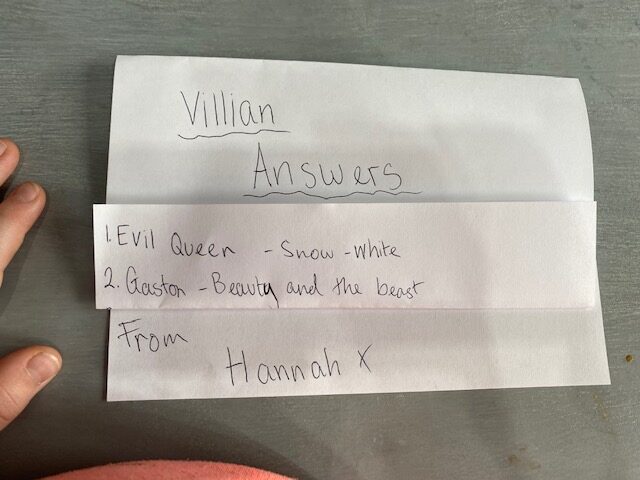 Villian
Answers
1. Evil Queen - Snow-White
2. Gaston - Beauty and the beast
From
Hannah X